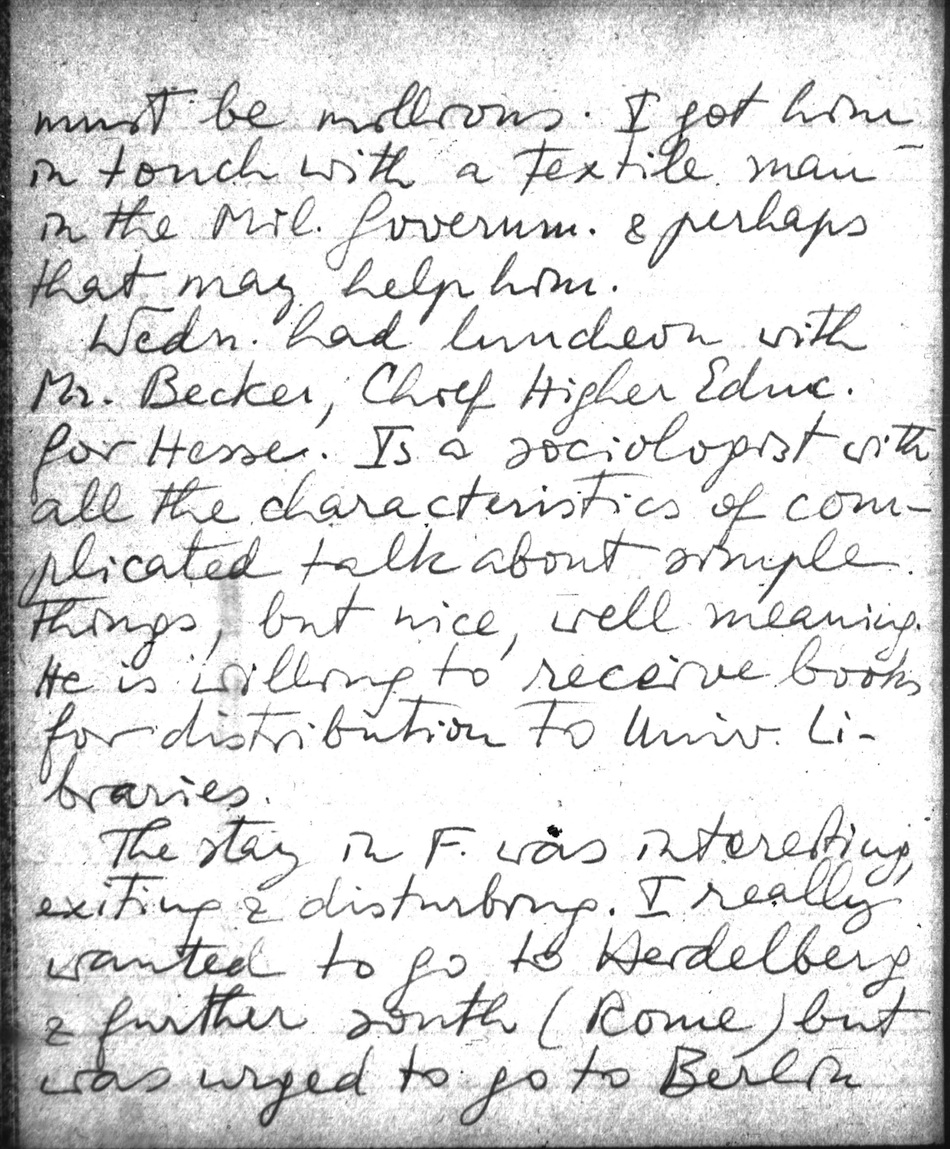 must be millions. I got him
in touch with a Textile man
in the Mil. Governm. & perhaps
that may help him.
Wedn. had luncheon with
Mr. Becker, Chief Higher Educ.
for Hesse. Is a sociologist with
all the characteristics of com-
plicated talk about simple
things, but nice, well meaning.
He is willing to receive books
for distribution to Univ. Li-
braries.
The stay in F. was interesting,
exiting & disturbing. I really
wanted to go to Heidelberg
& further south (Rome) but
was urged to go to Berlin